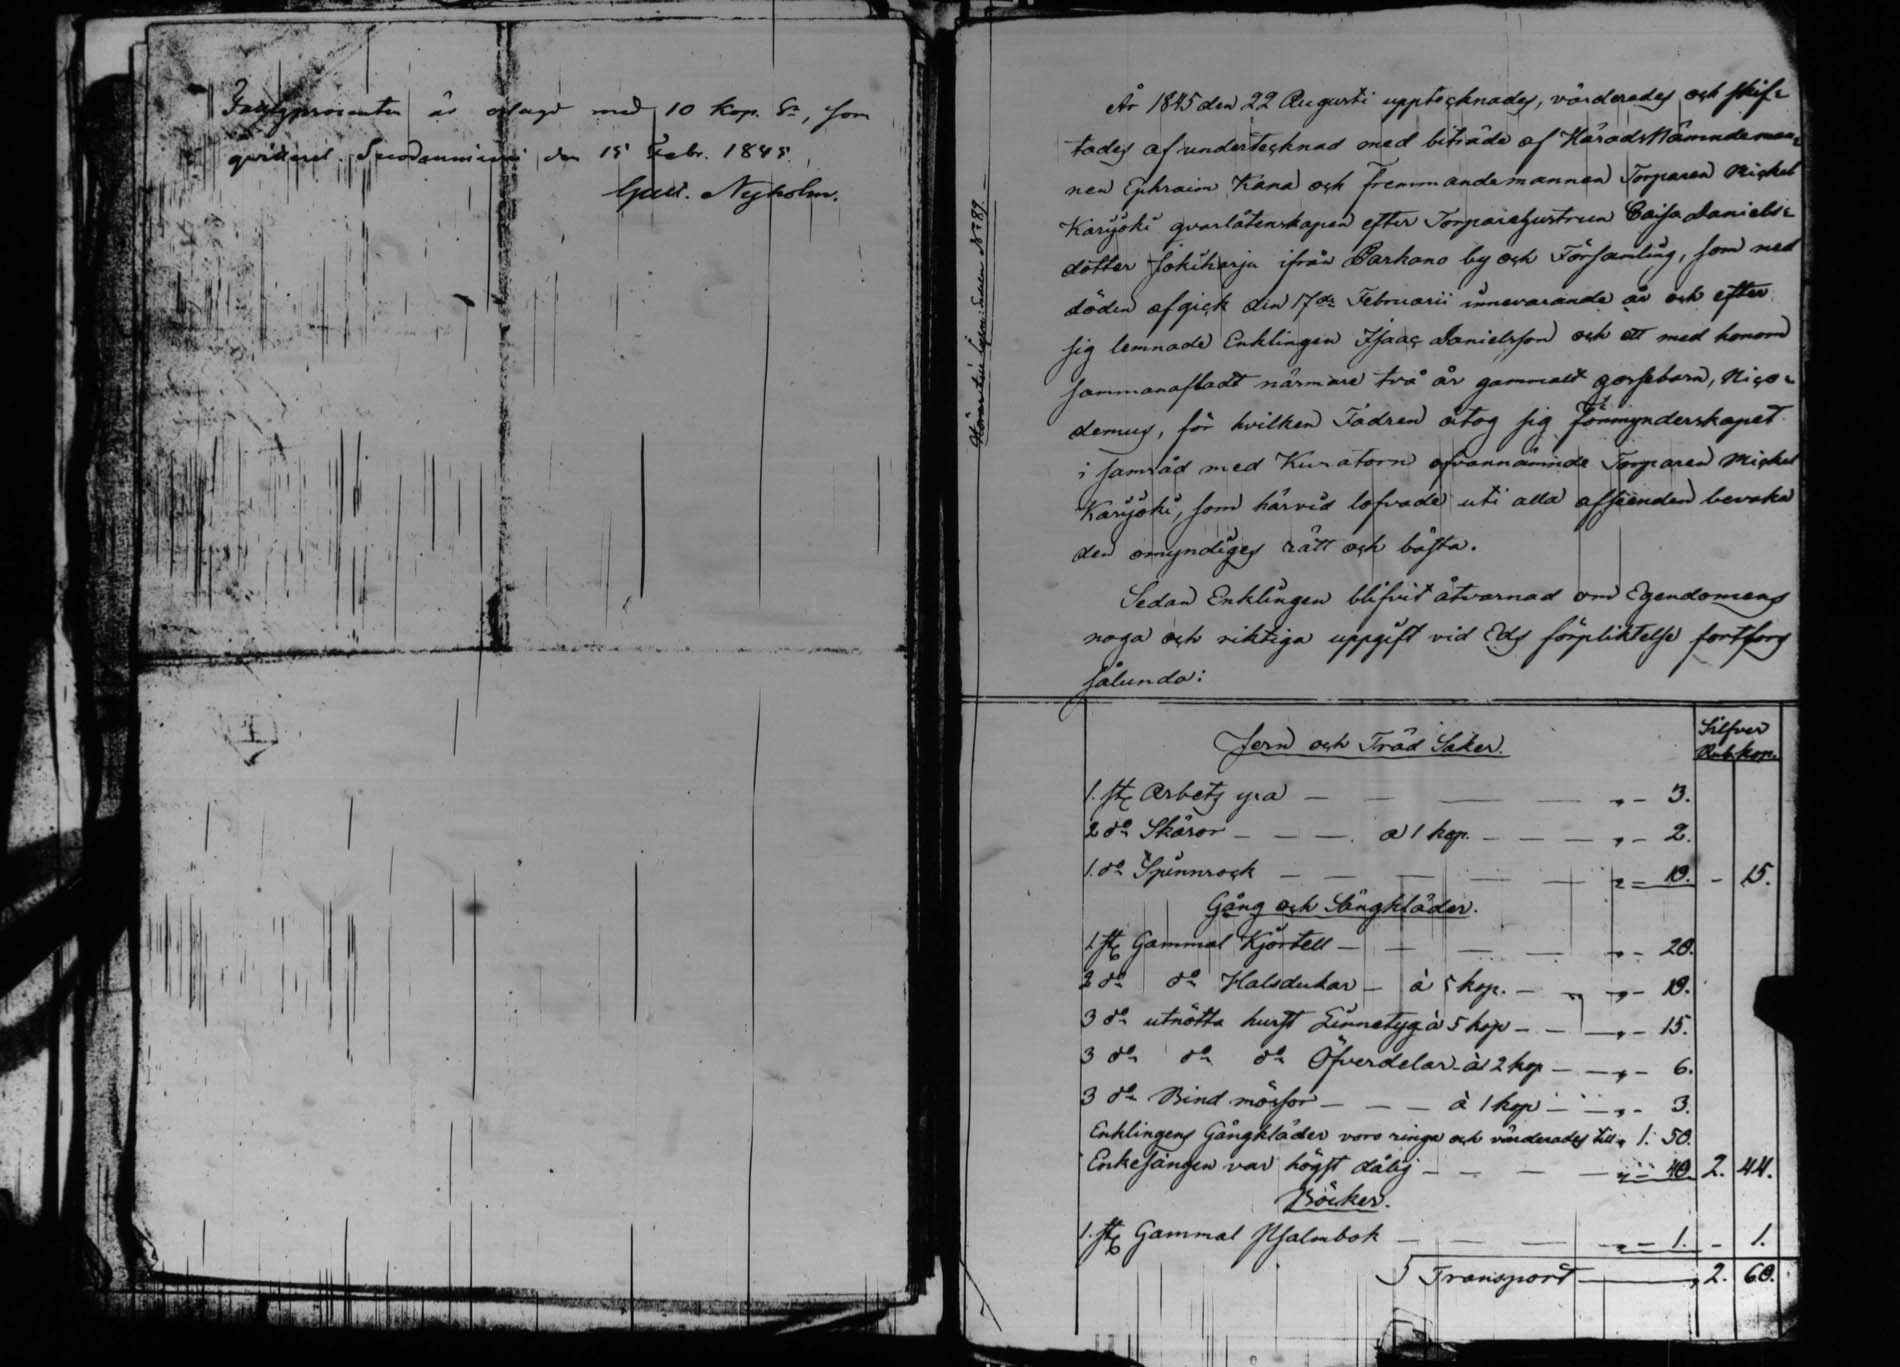 Fattigprocenten är erlagd med 10 kop. Sr, som
qvitteras. Suodenniemi den 15 Febr. 1845.
Gust. Nyholm.
År 1845 den 22 Augusti upptecknades, värderades och skif-
tades af undertecknad med biträde af HäradsNämndeman-
nen Ephraim Kana och fremmandemannen Torparen Mickel
Karijöki qvarlåtenskapen efter Torparehustrun Caisa Daniels-
dotter Jokiharju ifrån Parkano by och Församling, som med
döden afgick den 17de Februarii innevarande år och efter
sig lemnade Enklingen Isaac Danielsson och ett med honom
sammanafladt närmare två år gammalt gossebarn, Nico-
demus, för hvilken Fadren åtog sig Förmynderskapet
i samråd med Kuratorn ofvannämnde Torparen Mickel
Karijöki, som härvid lofvade uti alla afseenden bevaka
den omyndiges rätt och bästa.
Sedan Enklingen blifvit åtvarnad om Egendomens
noga och riktiga uppgift vid Eds förpliktelse fortfors
sålunda:
Silfver
Jern och Träd Saker. Rub. kop.
1. st Arbets yxa — — — — „ - 3.
2 do Skäror — — — a 1 kop. — — — „ - 2.
1. do Spinnrock — — — — — „ - 10. - 15.
Gång och Sängkläder.
1 st Gammal Kjortell — — — — „ - 20.
2 do do Halsdukar — à 5 kop. — „ „ - 10.
3 do utnötta hurst Linnetyg à 5 kop — — „ - 15.
3 do do do Öfverdelar à 2 kop — — „ - 6.
3 do Bind mössor — — — à 1 kop — — „ - 3.
Enklingens Gångkläder voro ringa och värderades till „ 1. 50.
Enkesängen var högst dålig — — — — „ - 40. 2. 44.
Böcker.
1. st Gammal Psalmbok — — — — „ - 1. - 1.
Transport — „ 2. 60.